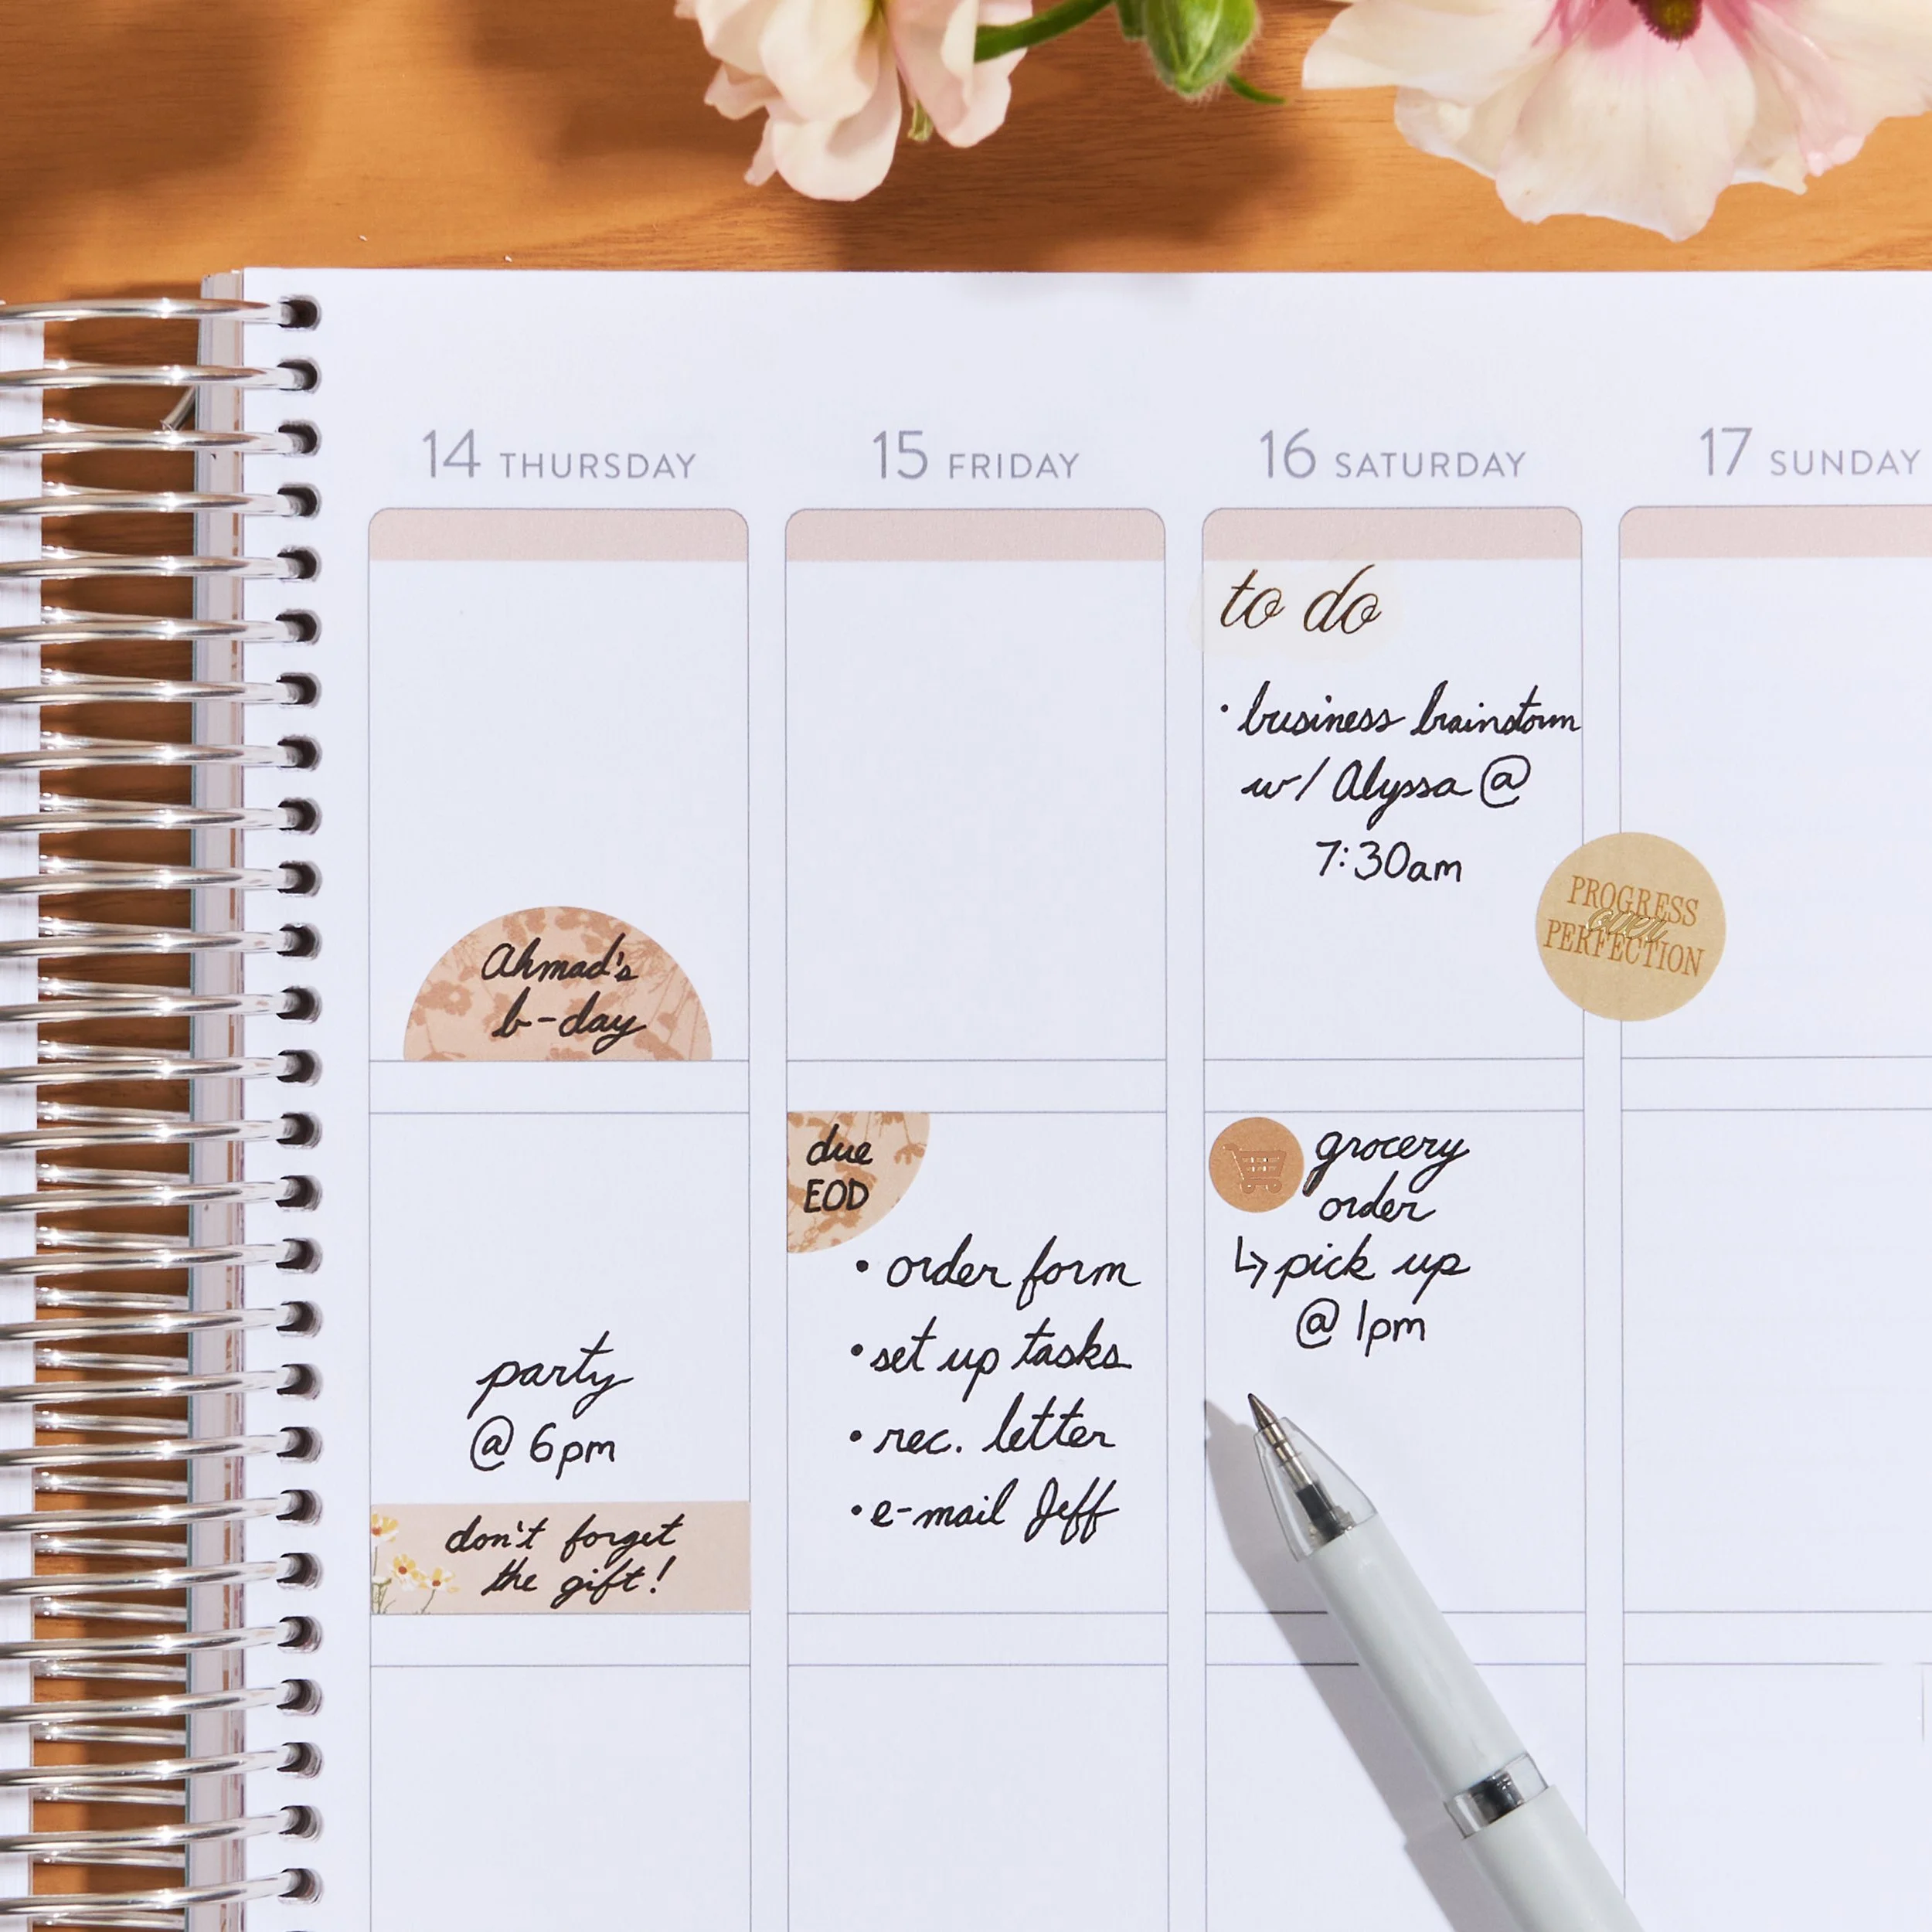 14 THURSDAY
Ahmad's
b-day
party
@ 6pm
don't forget
the gift!
15 FRIDAY
due
EOD
• order form
• set up tasks
• rec. letter
• e-mail Jeff
16 SATURDAY
to do
• business brainstorm
w/ Alyssa @
7:30am
grocery
order
↳ pick up
@ 1pm
17 SUNDAY
PROGRESS
over
PERFECTION